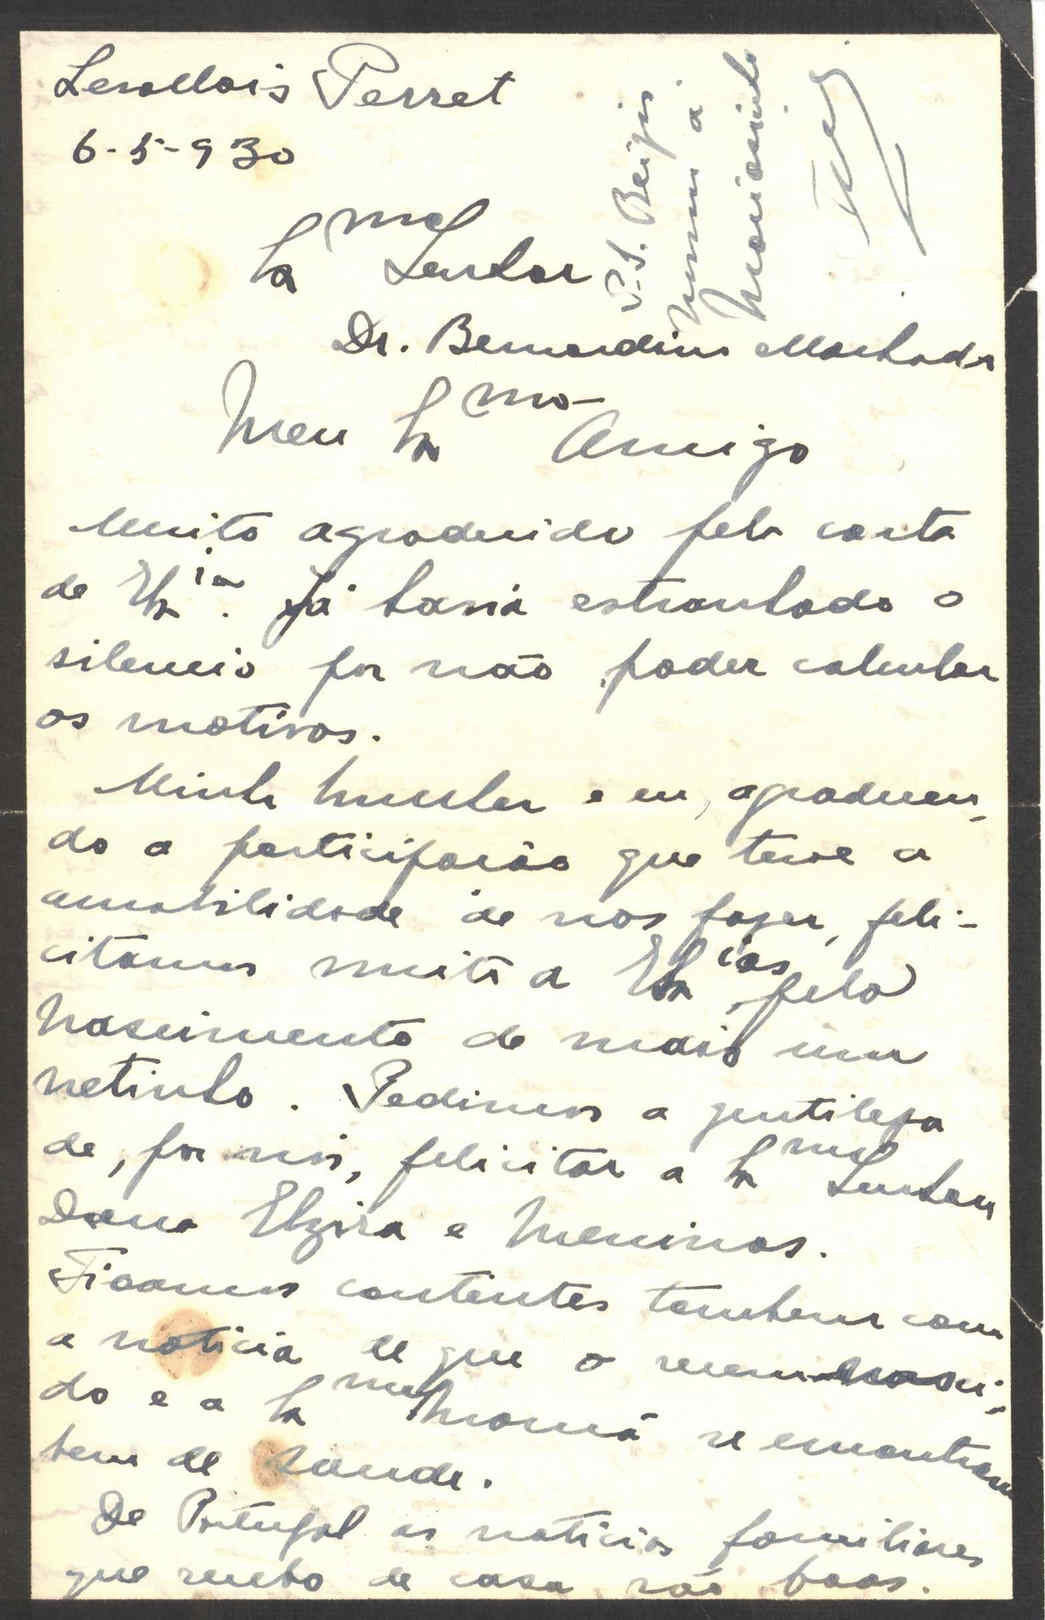 Levallois Perret
6-5-930
Exmo Senhor
Dr. Bernardino Machado
Meu Exmo Amigo
Muito agradecido pela carta
de V. Exia. Já havia estranhado o
silencio por não poder calcular
os motivos.
Minha mulher e eu, agradecen-
do a participação que teve a
amabilidade de nos fazer, feli-
citamos muito a V. Exias, pelo
nascimento de mais um
netinho. Pedimos a gentileza
de, por nós, felicitar a Exma Senhora
Dona Elzira e Meninos.
Ficamos contentes tambem com
a noticia de que o recemnasci-
do e a Exma Mamã se encontram
bem de saude.
De Portugal as noticias familiares
que recebo de casa são boas.
P.S. Beijos
nossos á